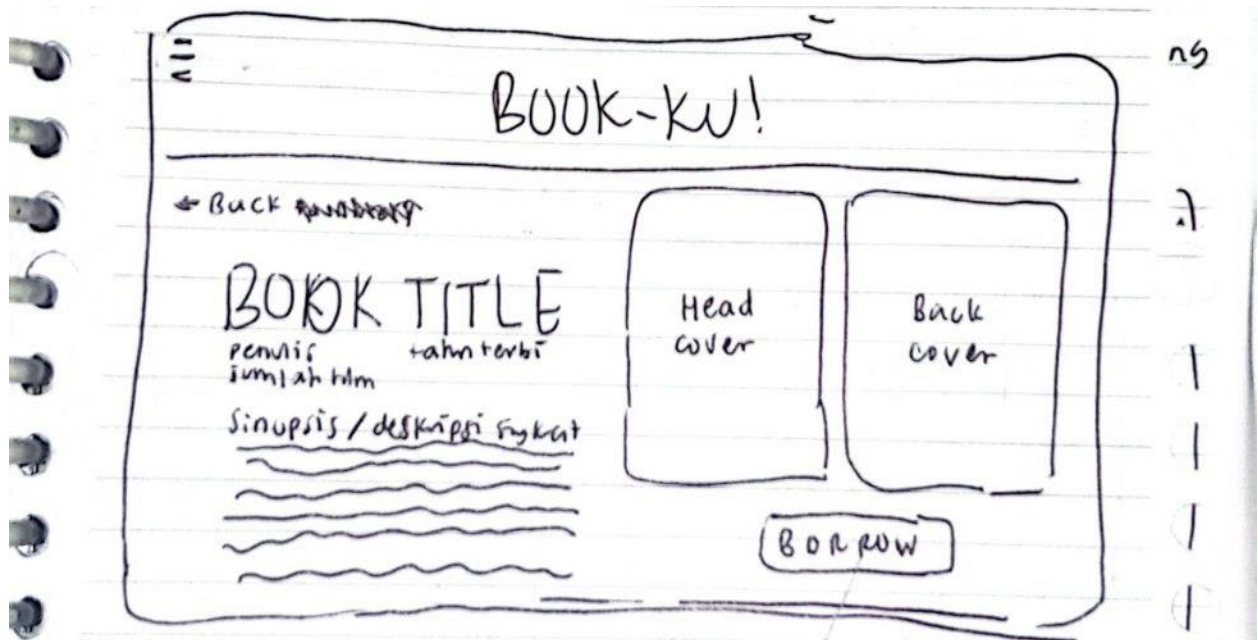 BOOK-KU!
← Back
BOOK TITLE
penulis tahn terbi
jumlah hlm
Sinopsis / deskripsi singkat
Head
cover
Back
cover
BORROW
ns